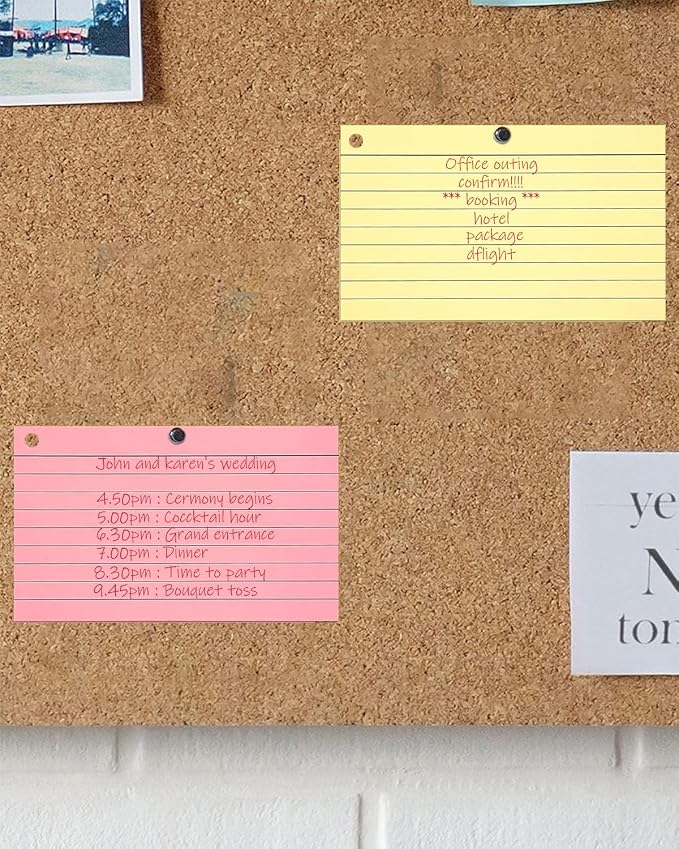 Office outing
confirm!!!!
*** booking ***
hotel
package
dflight
John and karen's wedding
4.50pm : Cermony begins
5.00pm : Coccktail hour
6.30pm : Grand entrance
7.00pm : Dinner
8.30pm : Time to party
9.45pm : Bouquet toss
ye
N
ton